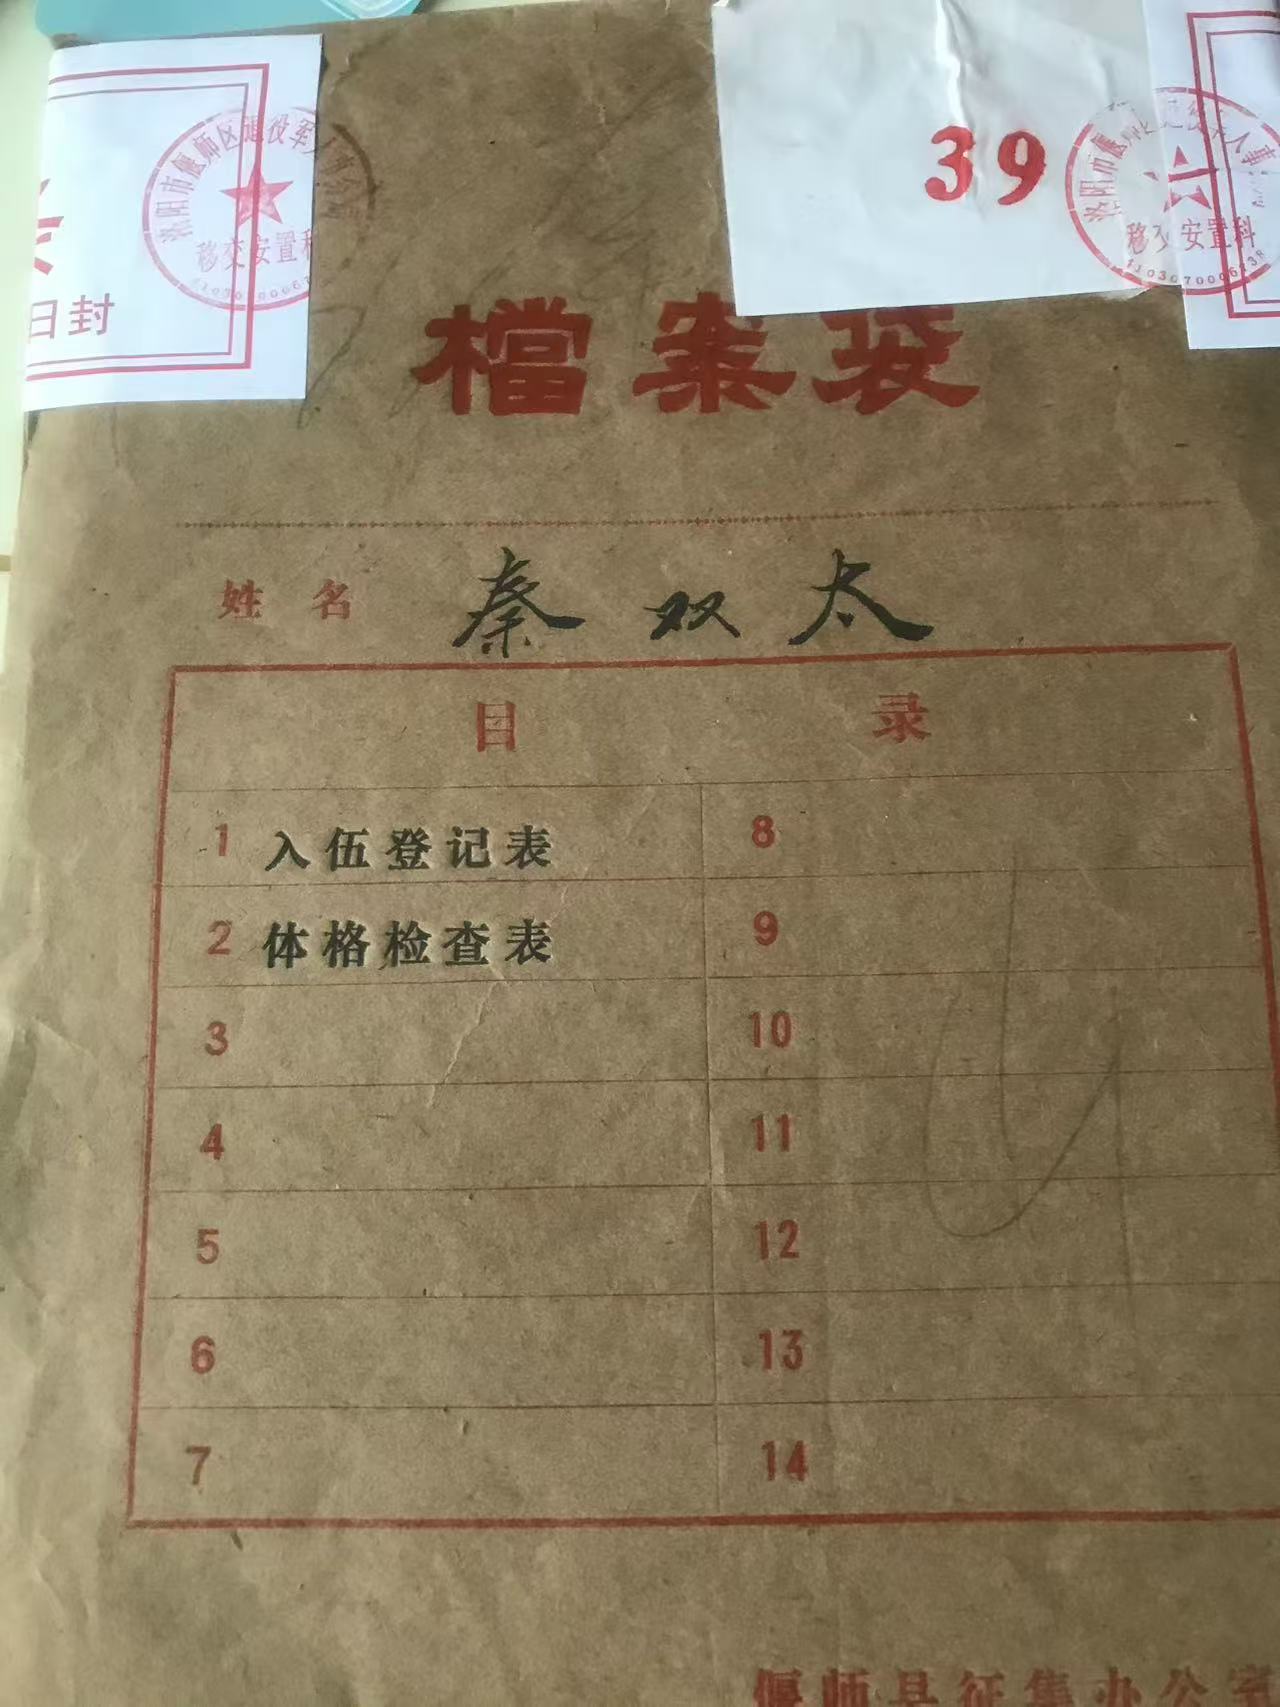 洛阳市偃师区退役军人事
移交安置科
日封
39
洛阳市偃师区退役军人事
移交安置科
檔案袋
姓名 秦双太
目录
1 入伍登记表 8
2 体格检查表 9
3 10
4 11
5 12
6 13
7 14
偃师县征集办公室